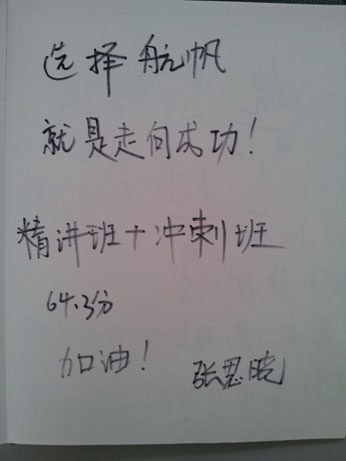 选择航帆
就是走向成功!
精讲班+冲刺班
64.3分
加油!
张思